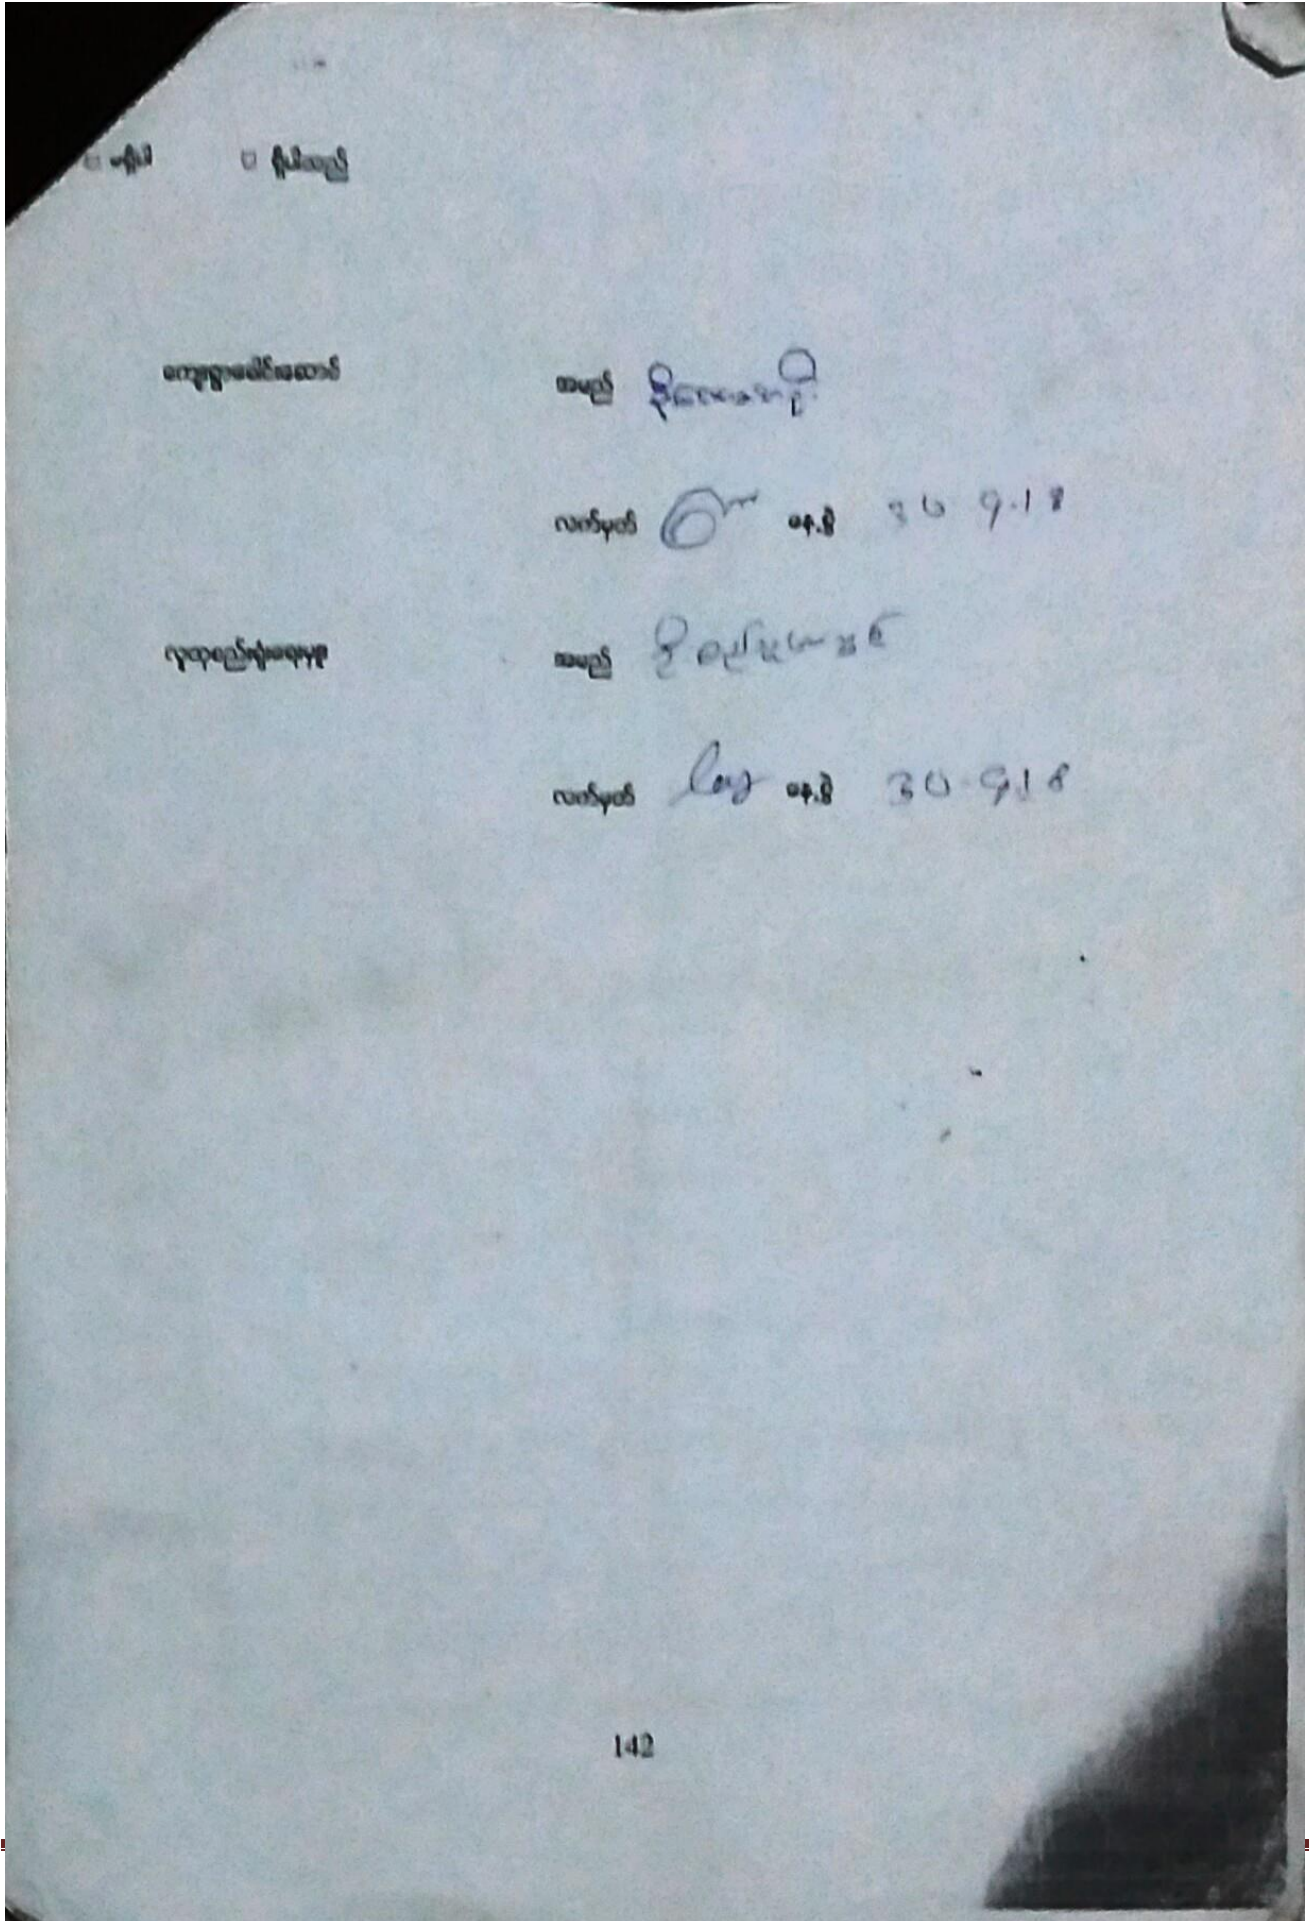 □ မရှိပါ □ ရှိပါသည်
ကျေးရွာခေါင်းဆောင် အမည်
လက်မှတ် နေ့စွဲ 30 9.18
လူထုစည်းရုံးရေးမှူး အမည်
လက်မှတ် နေ့စွဲ 30.9.18
142